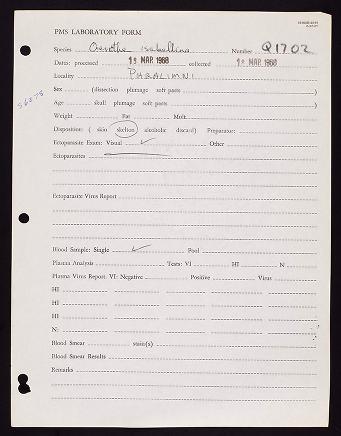 PMS LABORATORY FORM
Species Oenthe isabellina Number Q1702
Dates: processed 19 MAR 1968 collected 19 MAR 1968
Locality PARALIMNI
56878
Sex (dissection plumage soft parts )
Age skull plumage soft parts )
Weight Fat Molt
Disposition: ( skin skelton alcoholic discard) Preparator:
Ectoparasite Exam: Visual ✓ Other
Ectoparasites
Ectoparasite Virus Report
Blood Sample: Single ✓ Pool
Plasma Analysis Tests: VI HI N
Plasma Virus Report. VI: Negative Positive Virus
HI
HI
HI
N:
Blood Smear stain(s)
Blood Smear Results
Remarks